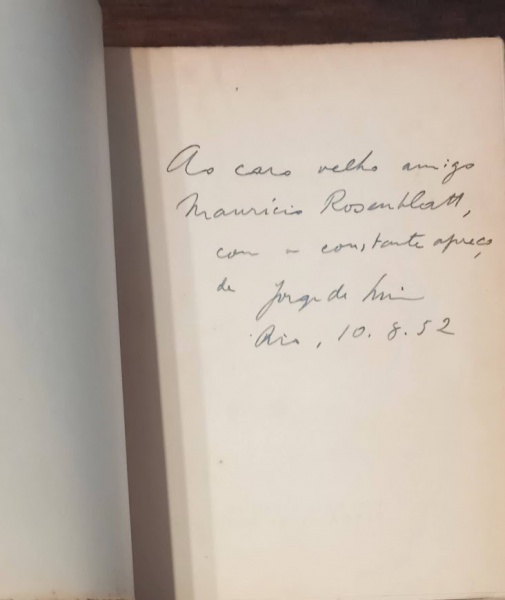 Ao caro velho amigo
Maurício Rosenblatt,
com o constante apreço
de Jorge de Lima
Rio, 10.8.52